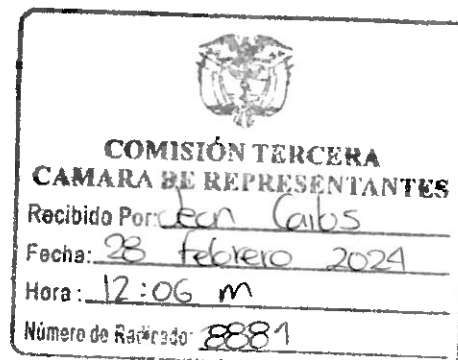 COMISIÓN TERCERA
CAMARA DE REPRESENTANTES
Recibido Por: Jean Carlos
Fecha: 28 febrero 2024
Hora: 12:06 m
Número de Radicado: 8881